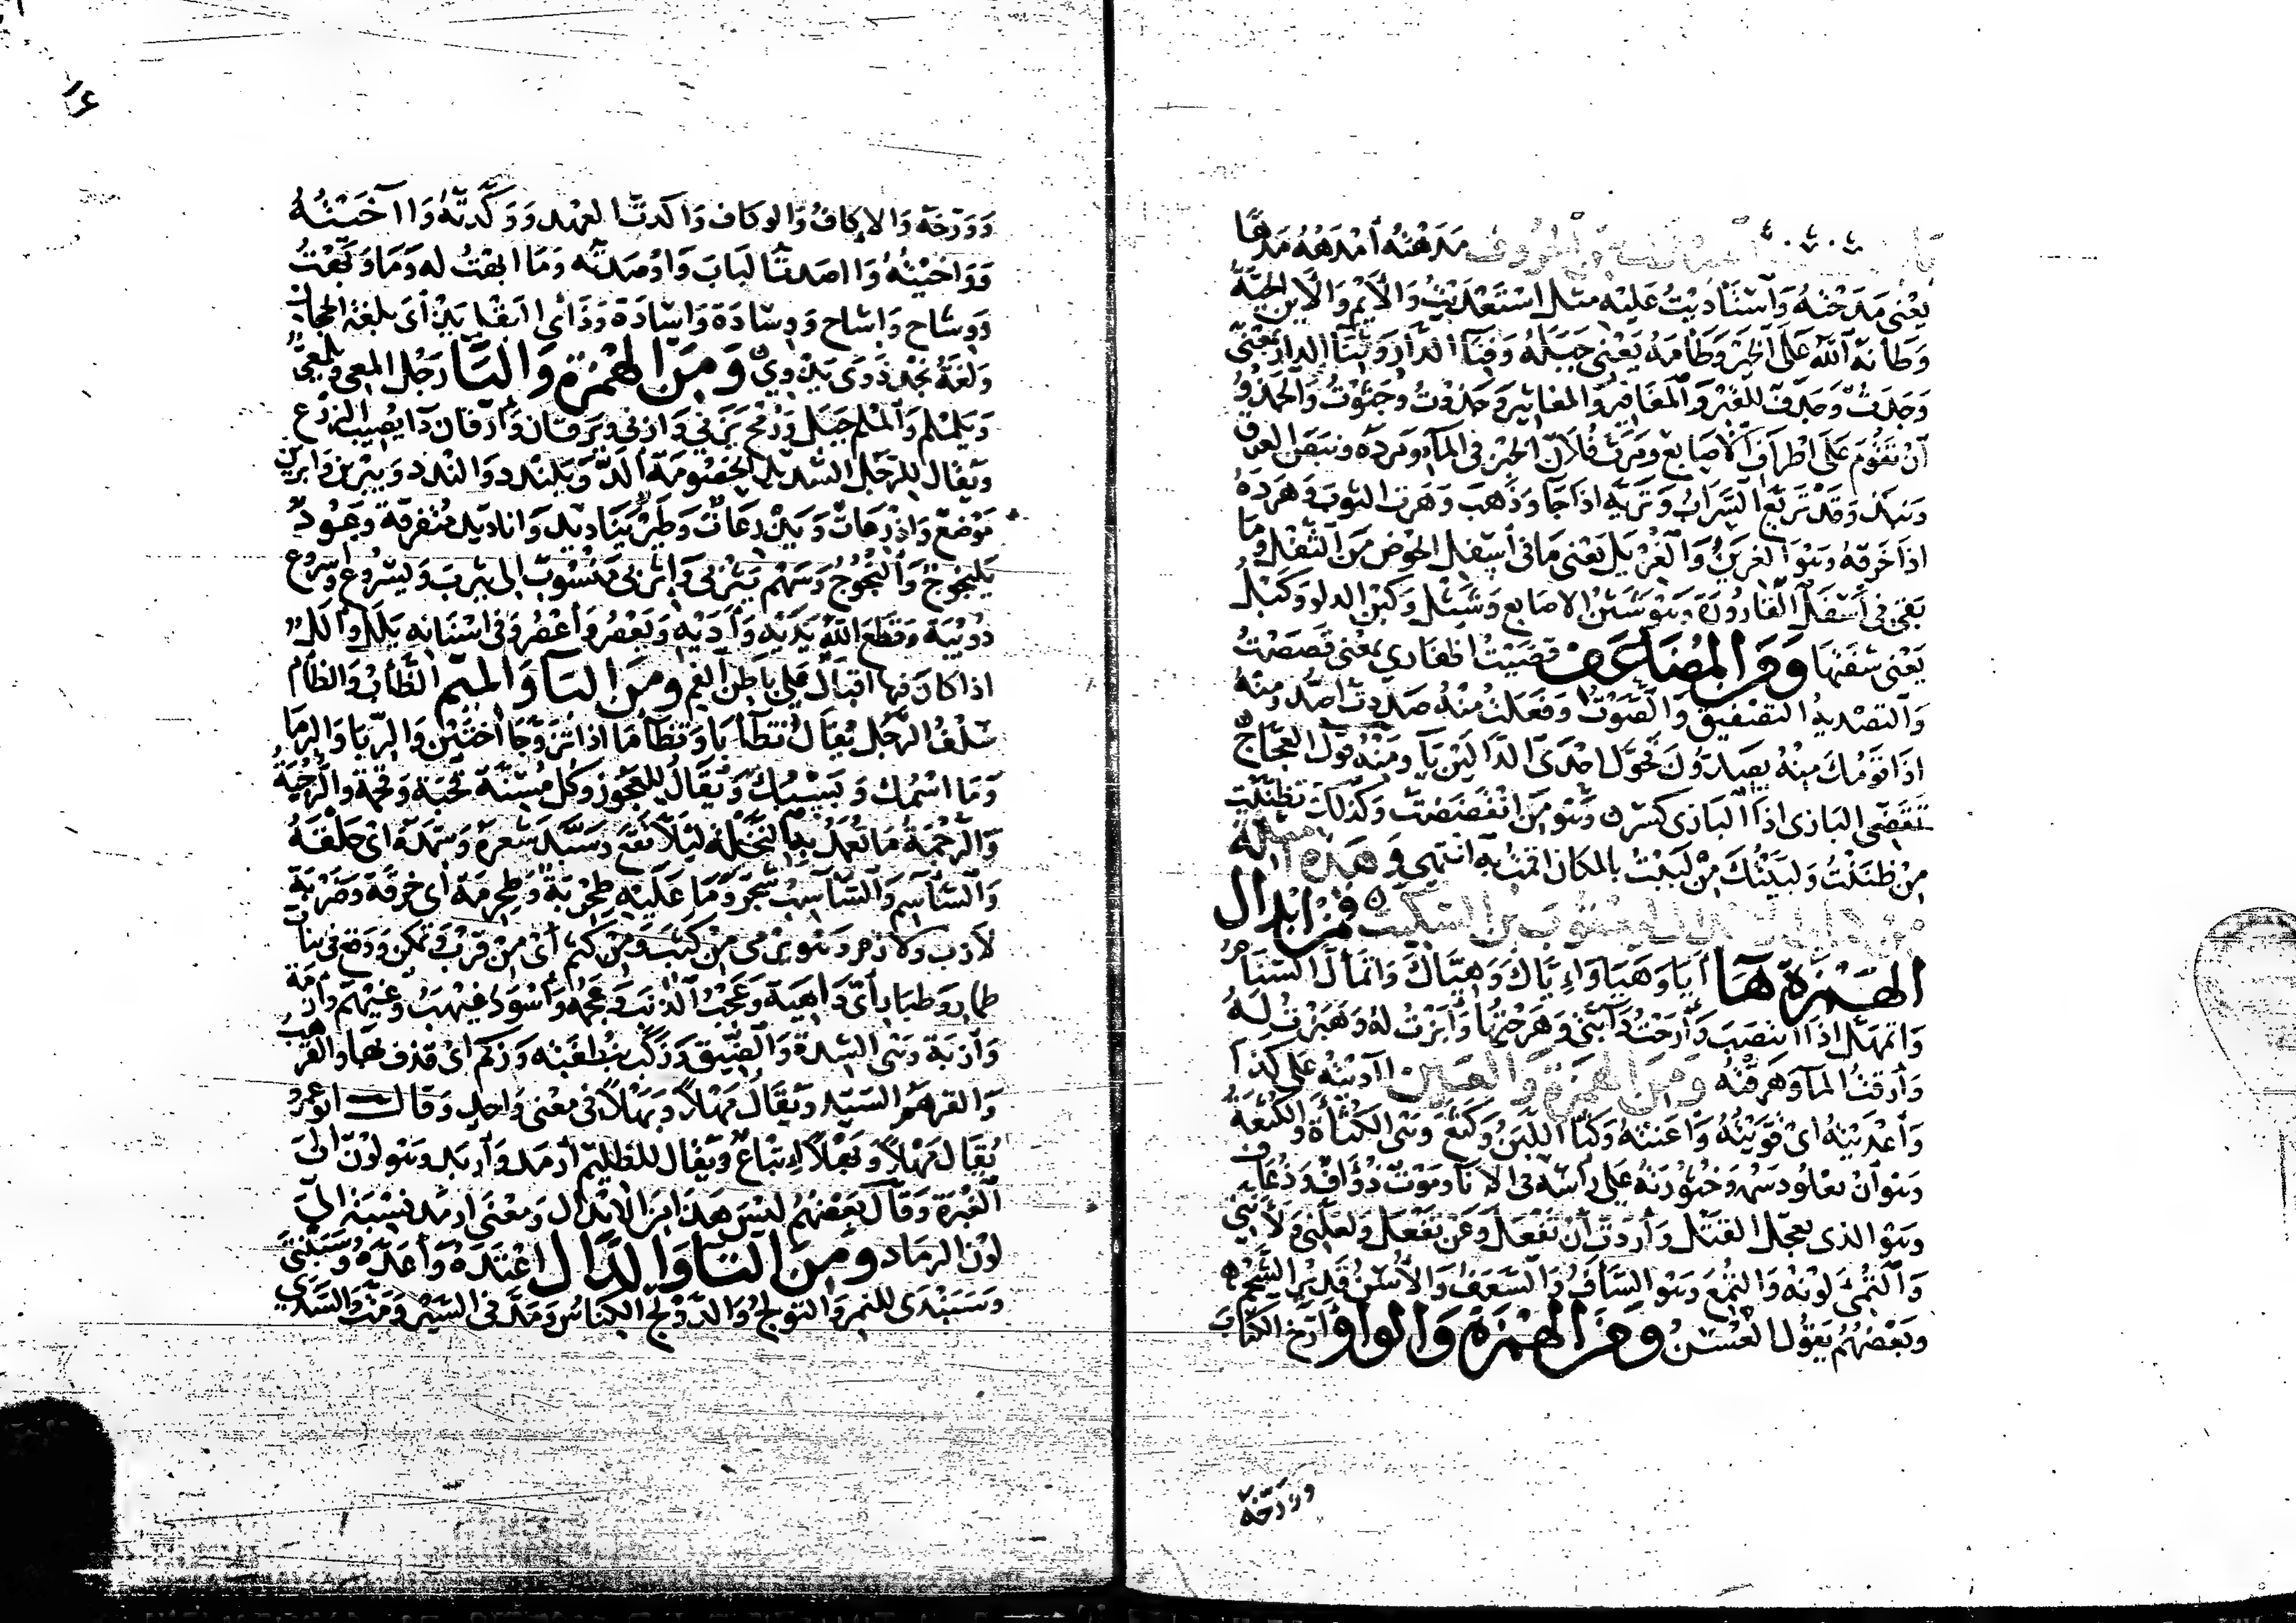 مَدَهْتُهُ أَمْدَهُهُ مَدْهًا
يَعْنِي مَدَحْتُهُ وَاَسْتَأْدَيْتُ عَلَيْهِ مثل اسْتَعْدَيْتُ وَالْأَيْمُ وَالْأَيْنُ الحَيَّةُ
وَطَانَهُ اَللهُ عَلَى الخَيْرِ وَطَامَهُ يَعْنِي جَبَلَهُ وَفِنَآ الدَّارِ وَثِنَآ الدار بمَعْنًى
وَجَدَثٌ وَجَدَفٌ لِلْقَبْرِ وَالمَغَافِيرُ وَالمَغَاثِيرُ وَجَذَوْتُ وَجَثَوْتُ وَالْجَذْوُ
أَنْ تَقُومَ عَلَى أَطْرَافِ الْأَصَابِعِ وَمَرَثَ فُلَانٌ الخُبْزَ في المَآءِ وَمَرَدَهُ وَنَبَضَ العِرْقُ
وَنَبَذَ وَقَدْ تَرَيَّعَ السَّرَابُ وَتَرَيَّهَ اذَا جَآ وَذَهَبَ وَهَرَتَ الثوبَ وَهَرَدَهُ
اذا خَرَقَهُ وَهُوَ الغِرْيَنُ وَالْغِرْيَلُ يَعْنِي مَا في أَسْفَلِ الحَوْضِ مِنَ الثُّفْلِ وَمَا
بَقِيَ فِي أَسْفَلِ الْقَارُورَةِ وَهُوَ شَثْنُ الأصابع وَشَثْلٌ وَكَبْنُ الدلو وَكَبْلُ
يَعْنِي شَفَتَهَا وَمِنَ المُضَاعَفِ قَصَّيْتُ اظفاري بمَعْنَى قَصَصْتُ
وَالتصْدِيَةُ التصْفِيقُ وَالصَّوْتُ وَفَعَلْتُ مِنْهُ صَدَدتُ أَصُدُّ وَمِنْهُ
اذَا قَوْمُكَ مِنْهُ يَصِدُّونَ فَحَوَّلَ احْدَى الدَّالَيْنِ يَآ وَمِنْهُ قَوْلُ العَجَّاجِ
تَقَضِّيَ البَازِي اذا البَازِي كَسَرْ وَهُوَ مِنَ انْقَضَضْتُ وَكَذَلِكَ تَظَنَّيْتُ
مِنْ ظَنَنْتُ وَلَبَّيْتُكَ مِنْ لَبَبْتُ بالمكَان أقَمْتُ بِهِ انتهى وَهَذِهِ أَمْثِلَةٌ
يَعْقُوبَ بْنِ السِّكِّيتِ فَمِنْ إبدَالِ
الهَمْزَةِ هَآ أَيَا وَهَيَا وَإِيَّاكَ وَهِيَّاكَ وَاتْمَأَلَّ السَّنَامُ
وَاتْمَهَلَّ اذَا انْتَصَبَ وَأَرَحْتُ دَآبَّتِي وَهَرَحْتُهَا وَأَبَزْتُ لَهُ وَهَبَزْتُ لَهُ
وَأَرَقْتُ المَآ وَهَرَقْتُهُ وَمِنَ الهَمْزَةِ وَالْعَيْنِ آدَيْتُهُ عَلَى كذا
وَأَعْدَيْتُهُ اىْ قَوَّيْتُهُ وَأَعَنْتُهُ وَكَثَأَ اللَّبَنُ وَكَثَعَ وَهِيَ الكَثْأَةُ وَالكَثْعَةُ
وَهُوَ أَنْ يَعْلُوَ دَسَمُهُ وَخُثُورَتُهُ عَلَى رَأْسِهِ في الإنَآءِ وَمَوْتٌ ذُؤَافٌ وَذُعَافٌ
وَهُوَ الذي يُعَجِّلُ القَتْلَ وَأَرَدتُ أَنْ تَفْعَلَ وَعَنْ تَفْعَلَ وَلَعَلَّنِي وَلَأَنَّنِي
وَالْتُمِئَ لَوْنُهُ وَالْتُمِعَ وَهُوَ السَّأَفُ وَالسَّعَفُ وَالْأُسُنُ قَدِيمُ الشَّحْمِ
وَبَعْضُهُمْ يَقُولُ الْعُسُنُ وَمِنَ الهَمْزَةِ وَالْوَاوِ أَرَّخَ الكِتَابَ
وَوَرَّخَهُ
وَوَرَّخَهُ وَالإكَافُ وَالوِكَافُ وَاَكَّدتُ العَهْدَ وَوَكَّدتُّهُ وَآخَيْتُهُ
وَوَاخَيْتُهُ وَآصَدتُّ البَابَ وَأَوْصَدتُّهُ وَمَا أبَهْتُ لَهُ وَمَا وَبَهْتُ
وَوِشَاحٌ وَإشَاحٌ وَوِسَادَةٌ وَإسَادَةٌ وَذَأَى البَقْلُ يَذْأَى بِلُغَةِ الحِجَازِ
وَلُغَةُ نَجْدٍ ذَوَى يَذْوِي وَمِنَ الهَمْزَةِ وَاليَآ رَجُلٌ أَلْمَعِي وَيَلْمَعِيٌّ
وَيَلَمْلَمُ وَأَلَمْلَمُ جَبَلٌ وَرُمْحٌ يَزَنِيٌّ وَأَزَنِيٌّ وَيَرَقَان وَأَرَقَان دَآ يُصِيبُ الزَّرْعَ
وَيُقَالُ للرَّجُلِ الشَّدِيدِ الخُصُومَةِ أَلَدُّ وَيَلَنْدَد وَالَنْدَد وَيَبْرِين وَابْرِينَ
مَوْضِعٌ وَاذْرِعَاتٌ وَيَذْرِعَاتٌ وَطَيْرٌ يَنَادِيدُ وَانَادِيدُ مُتَفَرِّقَةٌ وَعُودٌ
يَلَنْجُوجٌ وَأَلَنْجُوجٌ وَسَهْمٌ يَثْرِبِيٌّ وَأَثْرِبِيٌّ مَنْسُوبٌ الى يَثْرِبَ وَيُسْرُوعٌ وَأُسْرُوعٌ
دُوَيْبَّةٌ وَقَطَعَ اَللَّهُ يَدَيْهِ وَأَدَيْهِ وَيَعْصُرُ وَأَعْصُرُ وَفِي اسْنَانِهِ يَلَلٌ وَأَلَلٌ
اذا كانَ فِيهَا اقْبَالٌ عَلَى بَاطِنِ الْفَمِ وَمِنَ البَآ وَالْمِيمِ الظَّأْبُ وَالظَّأْمُ
سِلْفُ الرَّجُلِ يُقَالُ تَظَآءَبَا وَتَظَآءَمَا اذا تَزَوَّجَا أُخْتَيْنِ وَالرِّبَا وَالرِّمَا
وَمَا اسْمُكَ وَبَاسْمُكَ وَيُقَالُ لِلْعَجُوزِ وَكُلِّ مُسِنَّةٍ قَحْبَةٌ وَقَحْمَةٌ وَالرُّجْبَةُ
وَالرُّجْمَةُ مَا تُعْمَدُ بِهِ النَّخْلَةُ لِيَلَّا تَقَعَ وَسَبَّدَ شَعَرَهُ وَسَمَّدَهُ أىْ حَلَقَهُ
وَالسَّاسَمُ وَالسَّاسَبُ شَجَرٌ وَمَا عَلَيْهِ طِحْرِبَةٌ وَطِحْرِمَةٌ أىْ خِرْقَةٌ وَضَرْبَةُ
لَازِبٍ وَلَازِمٍ وَهُوَ يَرْمِي مِنْ كَثَبٍ وَمِنْ كَثَمٍ أَىْ مِنْ قُرْبٍ وَتَمَكُّنٍ وَوَقَعَ في بَنَاتِ
طَمَارِ وَطَبَارِ أَىْ دَاهِيَةٍ وَعَجْبُ الذَّنَبِ وَعَجْمُهُ وَأَسْوَدُ غَيْهَبٌ وَغَيْهَمٌ وَأَزْمَةٌ
وَأَزْبَةٌ وَهِيَ الشِّدَّةُ وَالضِّيقُ وَزَكَبَ بِنُطْفَتِهِ وَزَكَمَ اىْ قَذَفَ بِهَا وَالقَرْهَبُ
وَالقَرْهَمُ السَّيِّدُ وَيُقَالُ مَهْلًا وَبَهْلًا في مَعْنًى وَاحِدٍ وَقَالَ أبو عَمْرٍو
يُقَالُ مَهْلًا وَبَهْلًا إتْبَاعٌ وَيُقَالُ للظَّلِيمِ أَرْمَدُ وَأَرْبَدُ وَهُوَ لَوْنٌ الَى
الْغُبْرَةِ وَقَالَ بَعْضُهُمْ لَيْسَ هَذَا مِنَ الإبْدَالِ وَمَعْنَى أَرْمَدَ نِسْبَتُهُ الَى
لَوْنِ الرَّمَادِ وَمِنَ التَآ وَالدَّالِ اعْتَدَهُ وَأَعَدَّهُ وَسَبَنْتَى
وَسَبَنْدَى للنَّمِرِ وَالتَّوْلَجُ وَالدَّوْلَجُ الكِنَاسُ وَمَدَّ في السَّيْرِ وَمَتَّ وَالسَّدَى